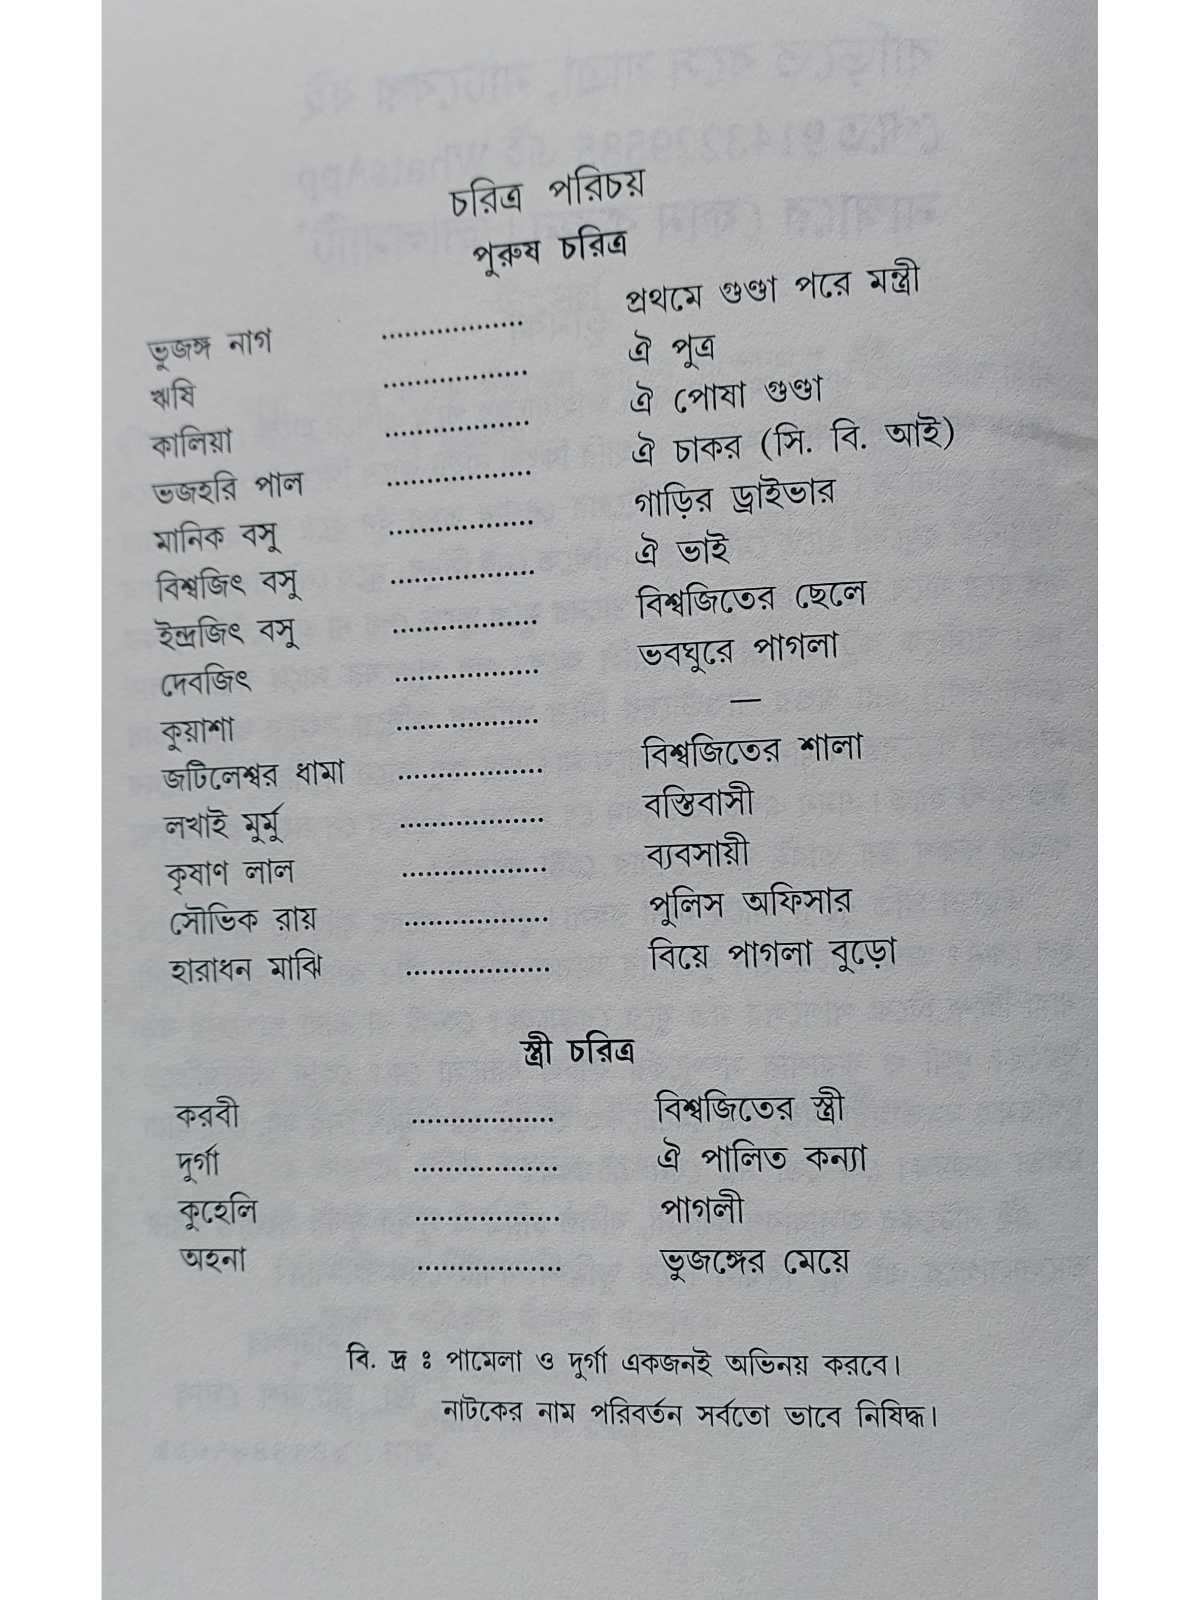 চরিত্র পরিচয়
পুরুষ চরিত্র
ভুজঙ্গ নাগ .................. প্রথমে গুণ্ডা পরে মন্ত্রী
ঋষি .................. ঐ পুত্র
কালিয়া .................. ঐ পোষা গুণ্ডা
ভজহরি পাল .................. ঐ চাকর (সি. বি. আই)
মানিক বসু .................. গাড়ির ড্রাইভার
বিশ্বজিৎ বসু .................. ঐ ভাই
ইন্দ্রজিৎ বসু .................. বিশ্বজিতের ছেলে
দেবজিৎ .................. ভবঘুরে পাগলা
কুয়াশা .................. —
জটিলেশ্বর ধামা .................. বিশ্বজিতের শালা
লখাই মুর্মু .................. বস্তিবাসী
কৃষাণ লাল .................. ব্যবসায়ী
সৌভিক রায় .................. পুলিস অফিসার
হারাধন মাঝি .................. বিয়ে পাগলা বুড়ো
স্ত্রী চরিত্র
করবী .................. বিশ্বজিতের স্ত্রী
দুর্গা .................. ঐ পালিত কন্যা
কুহেলি .................. পাগলী
অহনা .................. ভুজঙ্গের মেয়ে
বি. দ্র ঃ পামেলা ও দুর্গা একজনই অভিনয় করবে।
নাটকের নাম পরিবর্তন সর্বতো ভাবে নিষিদ্ধ।